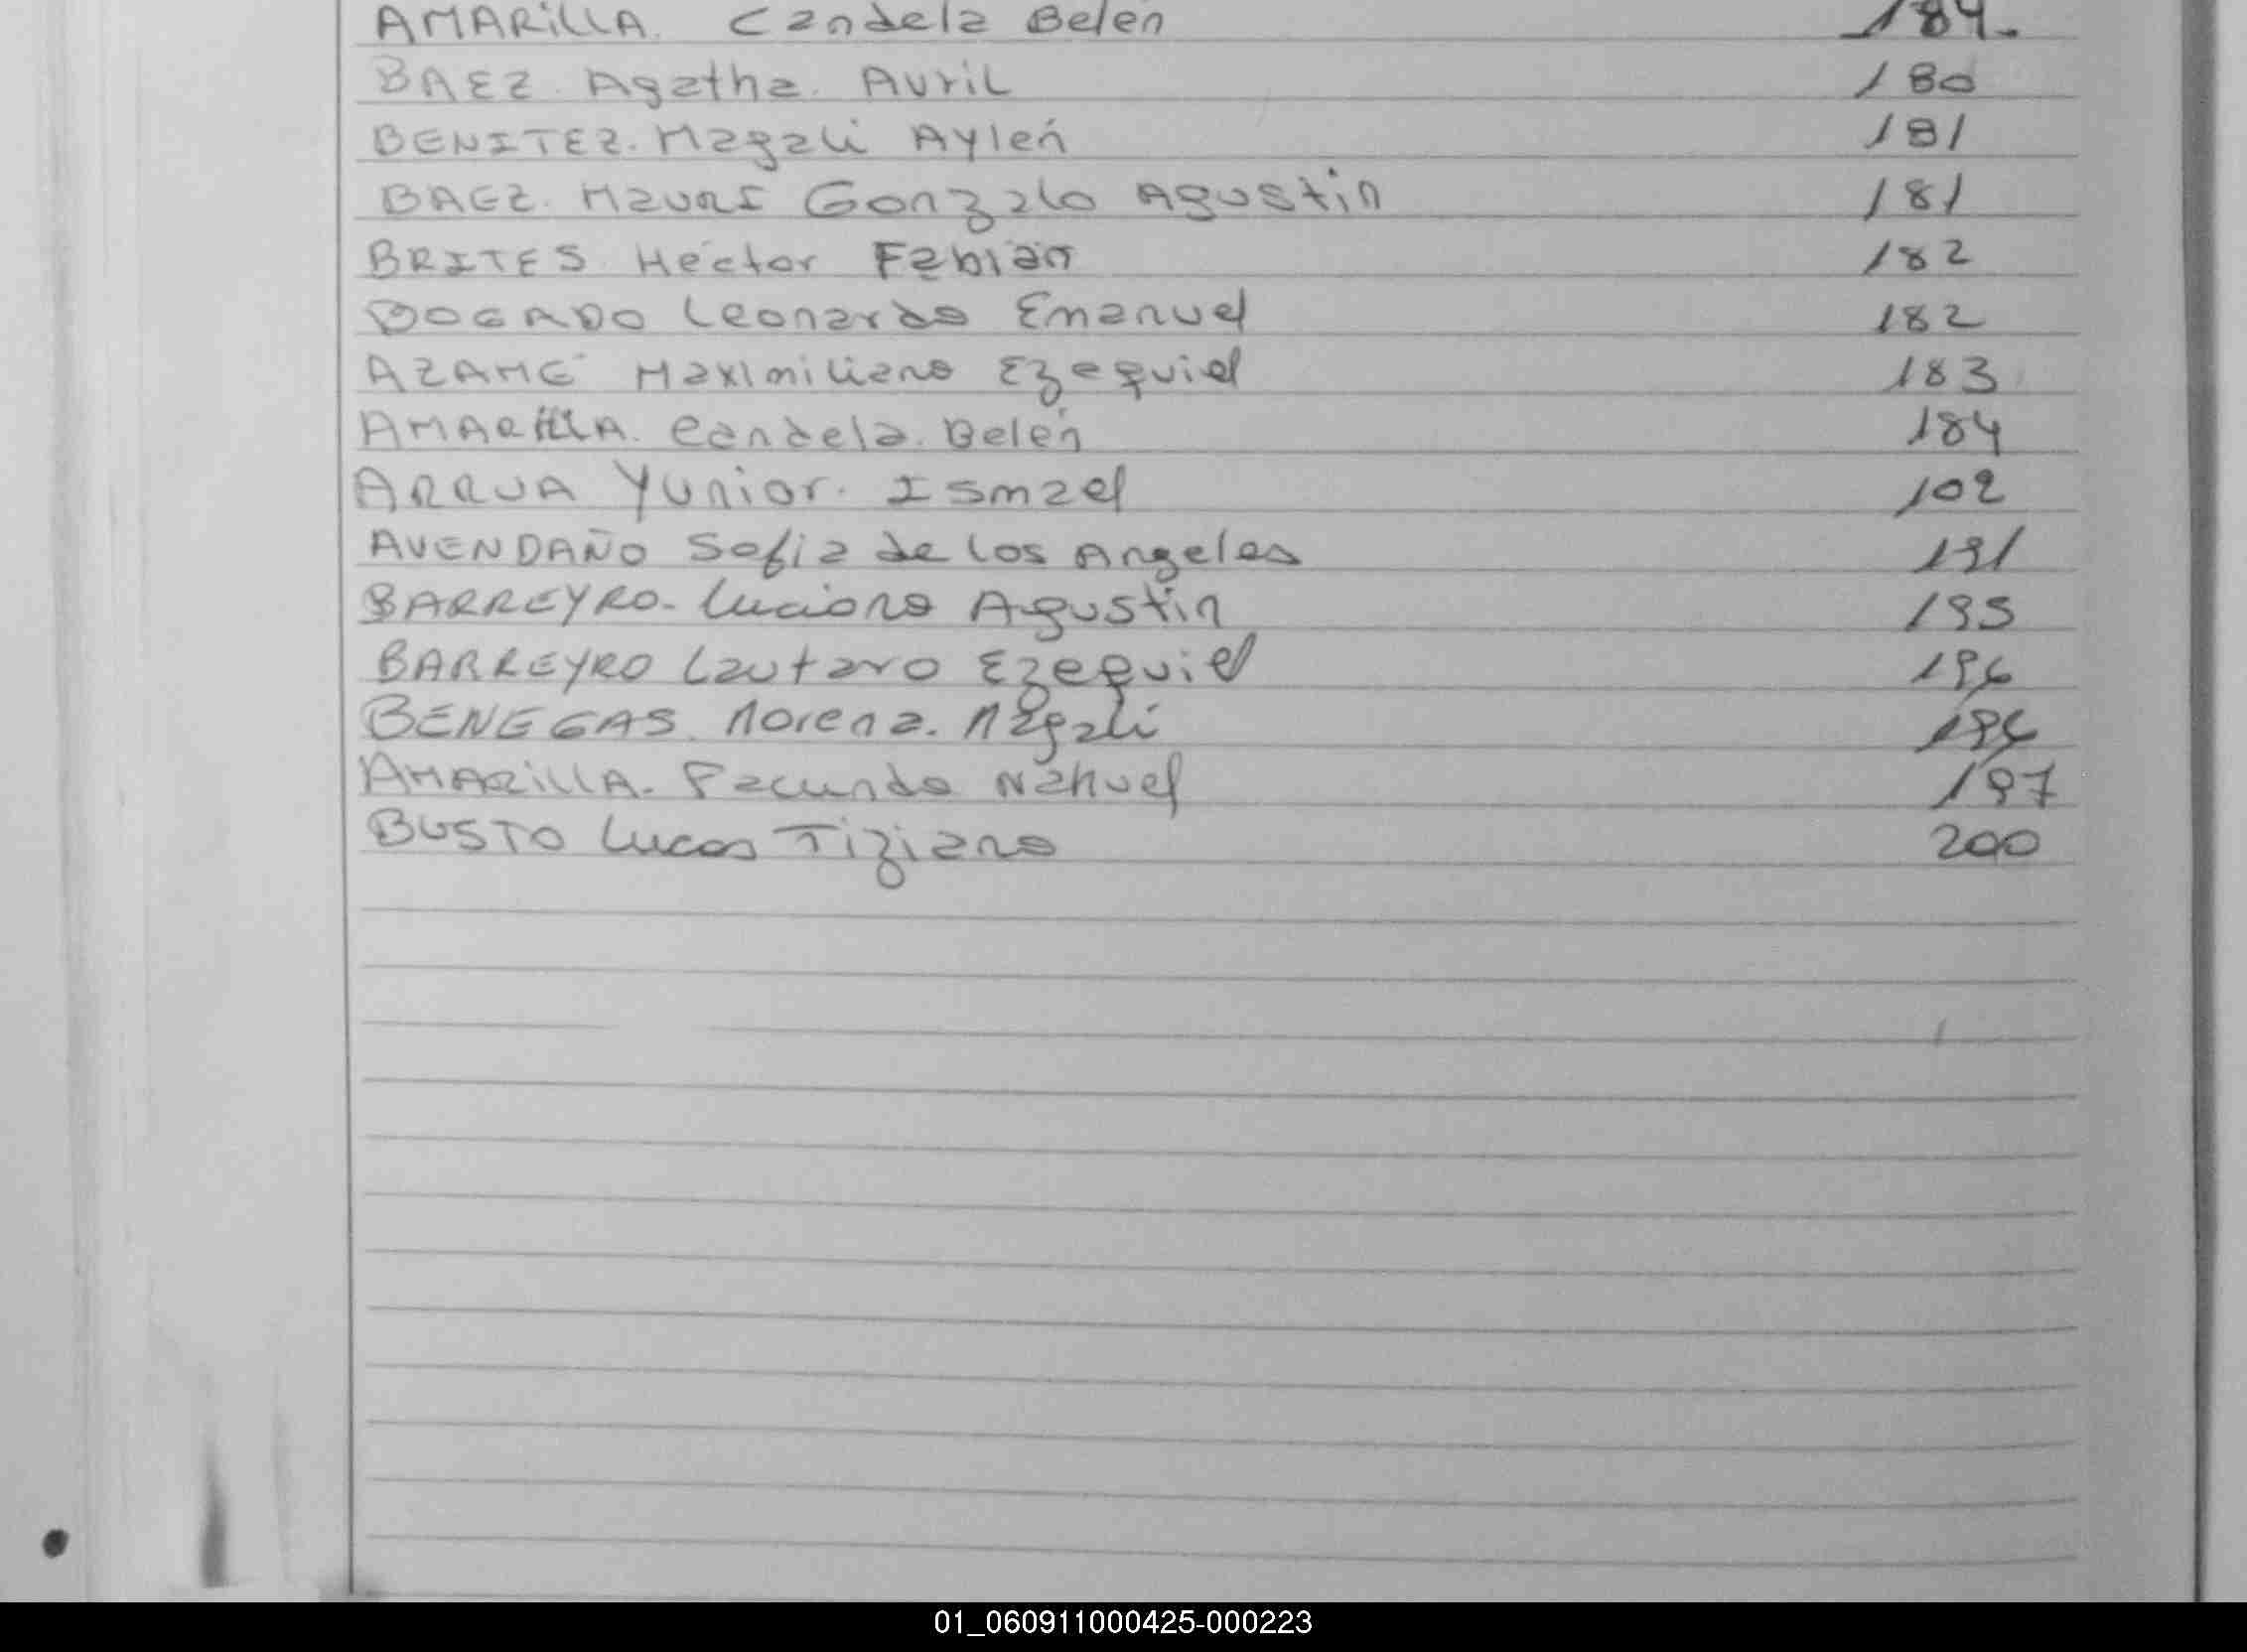 AMARILLA. Candela Belén 184.
BAEZ. Agatha. Avril 180
BENITEZ. Magali Aylén 181
BAEZ. Mauri Gonzalo Agustin 181
BRITES Héctor Fabian 182
BOGADO Leonardo Emanuel 182
AZAME Maximiliano Ezequiel 183
AMARILLA. Candela. Belén 184
ARRUA Yunior. Ismael 102
AVENDAÑO Sofia de los Angeles 191
BARREYRO. Luciano Agustin 195
BARREYRO Lautaro Ezequiel 196
BENEGAS. Morena. Magali 196
AMARILLA. Facundo Nahuel 197
BUSTO Lucas Tiziano 200
01_060911000425-000223